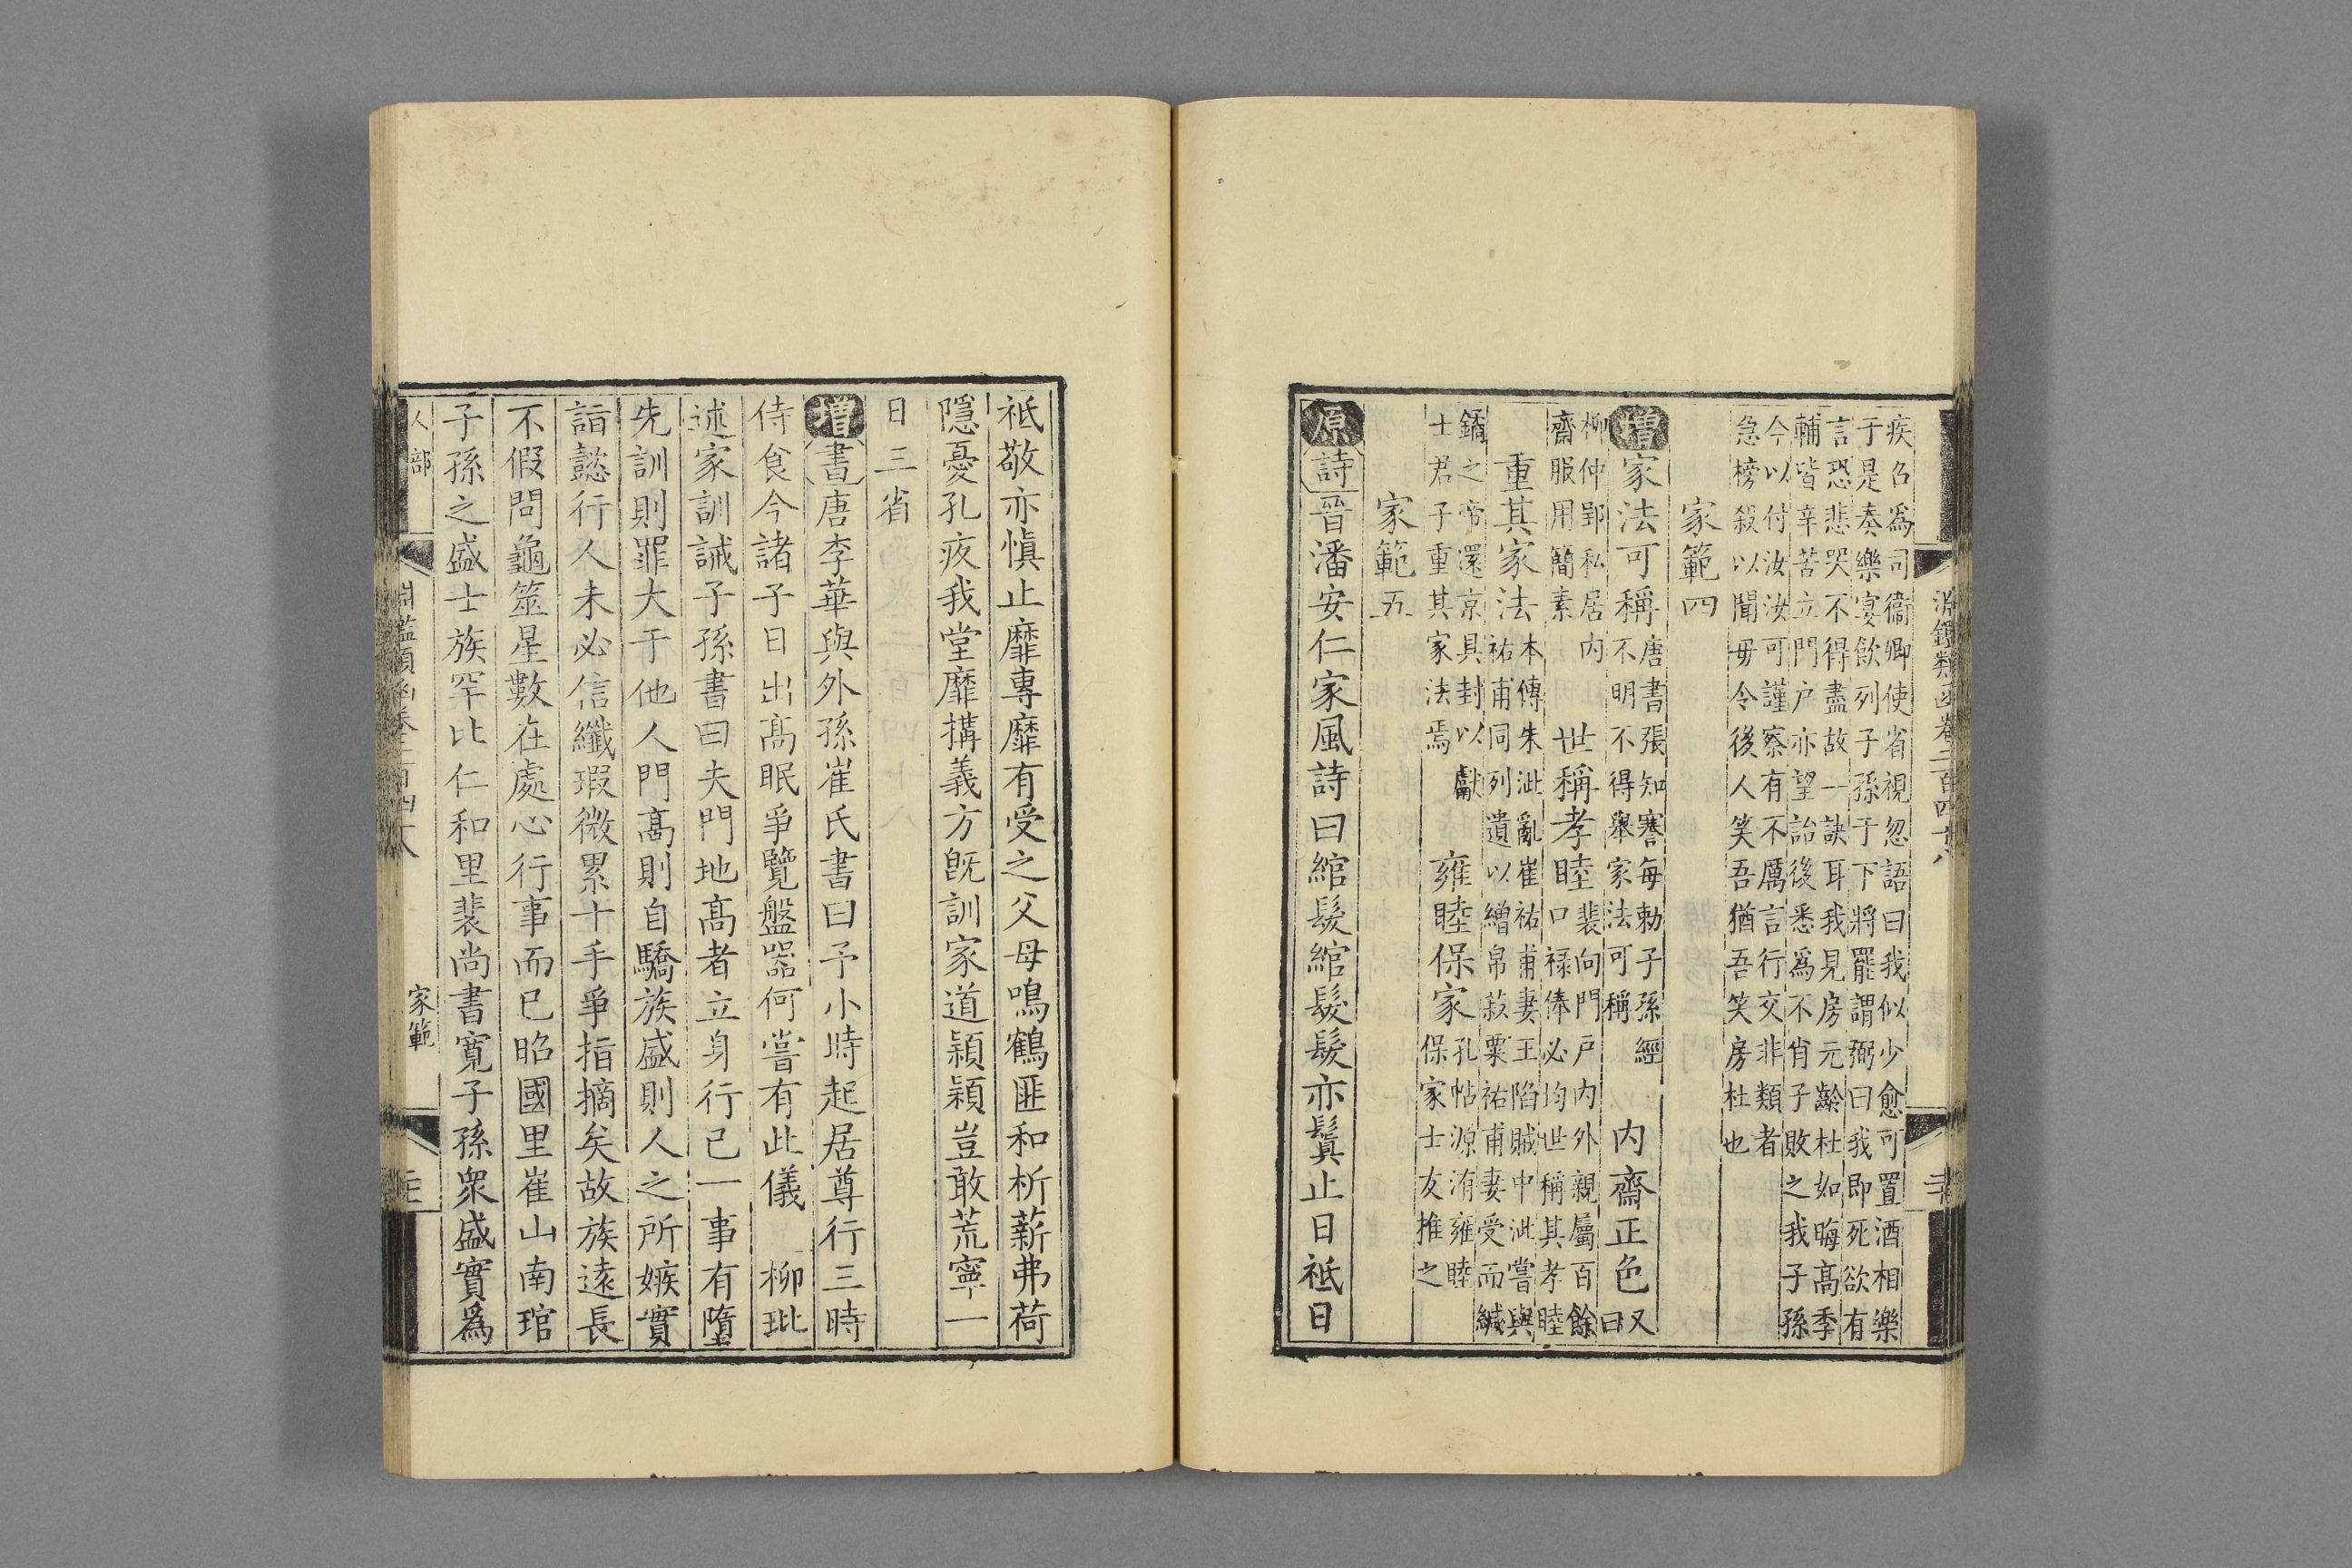 淵鑑類函卷二百四十八
疾召爲司衞卿使省視忽語曰我似少愈可置酒相樂
于是奏樂宴飲列子孫于下將罷謂弼曰我即死欲有
言恐悲哭不得盡故一訣耳我見房元齡杜如晦高季
輔皆辛苦立門户亦望詒後悉爲不肖子敗之我子孫
今以付汝汝可謹察有不厲言行交非類者
急榜殺以聞毋令後人笑吾猶吾笑房杜也
家範四
增家法可稱唐書張知謇每勅子孫經不明不得舉家法可稱内齋正色又曰
柳仲郢私居内齋服用簡素世稱孝睦裴向門户内外親屬百餘口祿俸必均世稱其孝睦
重其家法本傳朱泚亂崔祐甫妻王陷賊中泚嘗與祐甫同列遺以繒帛菽粟祐甫妻受而緘
鐍之帝還京具封以獻士君子重其家法焉雍睦保家孔帖源洧雍睦保家士友推之
家範五
原詩晉潘安仁家風詩曰綰髮綰髮髮亦鬒止日祗日
祗敬亦愼止靡專靡有受之父母鳴鶴匪和析薪弗荷
隱憂孔疚我堂靡搆義方旣訓家道穎穎豈敢荒寧一
日三省
增書唐李華與外孫崔氏書曰予小時起居尊行三時
侍食今諸子日出高眠爭覽盤器何嘗有此儀 柳玭
述家訓誡子孫書曰夫門地高者立身行己一事有墮
先訓則罪大于他人門高則自驕族盛則人之所嫉實
詣懿行人未必信纖瑕微累十手爭指摘矣故族遠長
不假問龜筮星數在處心行事而已昭國里崔山南琯
子孫之盛士族罕比仁和里裴尚書寬子孫衆盛實爲
人部
淵鑑類函卷二百四十八
家範